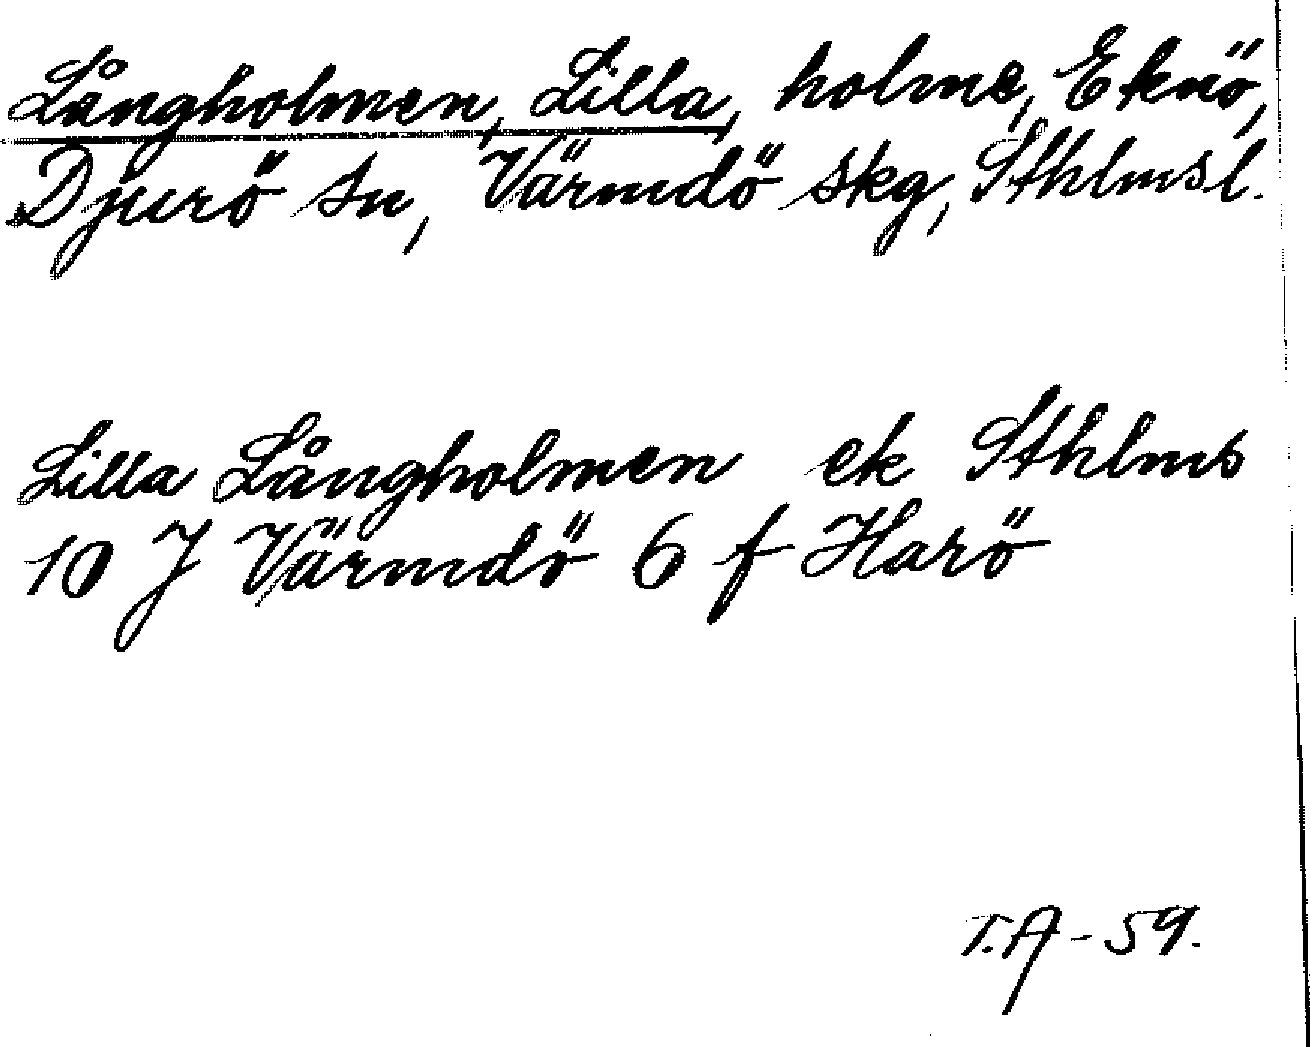 Långholmen, Lilla, holme, Eknö,
Djurö sn, Värmdö skg, Sthlmsl.
Lilla Långholmen ek Sthlms
10 J Värmdö 6 f Harö
T.A-59.